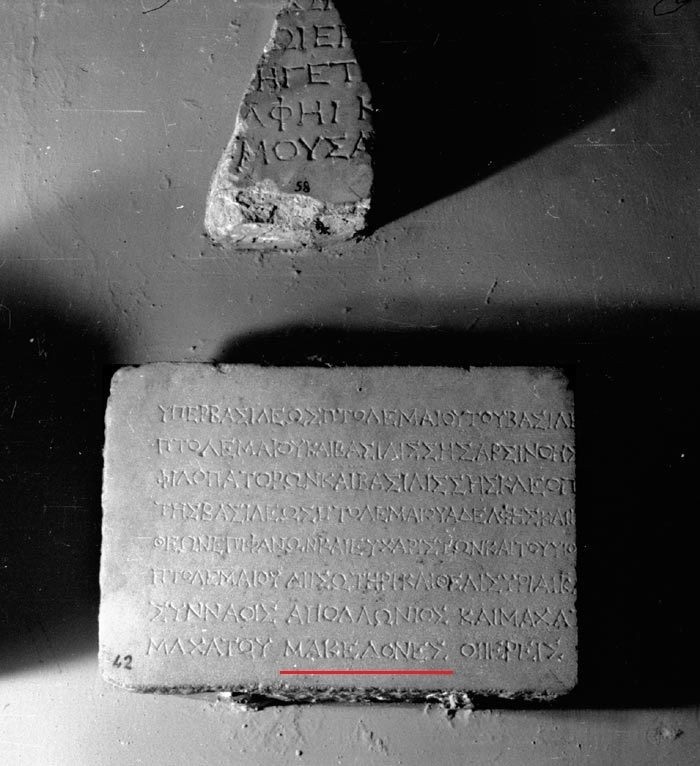 ΩΙΕΡ
ΗΓΕΤ
ΑΦΗΙ Κ
ΜΟΥΣΑ
58
ΥΠΕΡΒΑΣΙΛΕΩΣΠΤΟΛΕΜΑΙΟΥΤΟΥΒΑΣΙΛΕ
ΠΤΟΛΕΜΑΙΟΥΚΑΙΒΑΣΙΛΙΣΣΗΣΑΡΣΙΝΟΗΣ
ΦΙΛΟΠΑΤΟΡΩΝΚΑΙΒΑΣΙΛΙΣΣΗΣΚΛΕΟΠ
ΤΗΣΒΑΣΙΛΕΩΣΠΤΟΛΕΜΑΙΟΥΑΔΕΛΦΗΣΚΑΙ
ΘΕΩΝΕΠΙΦΑΝΩΝΚΑΙΕΥΧΑΡΙΣΤΩΝΚΑΙΤΟΥΥΙΟ
ΠΤΟΛΕΜΑΙΟΥ ΔΙΙΣΩΤΗΡΙΚΑΙΘΕΑΙΣΥΡΙΑΙΚΑ
ΣΥΝΝΑΟΙΣ ΑΠΟΛΛΩΝΙΟΣ ΚΑΙΜΑΧΑΤ
ΜΑΧΑΤΟΥ ΜΑΚΕΔΟΝΕΣ ΟΙΙΕΡΕΙΣ
42